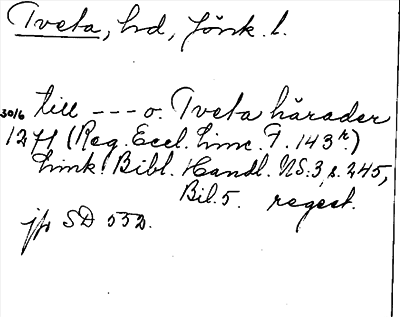 Tveta, hd, Jönk. l.
till --- o. Tveta härader
30/6
1277 (Reg. Eccl. Linc. F. 143r.)
Link. Bibl. Handl. NS. 3, s. 245,
Bil. 5. regest.
jfr SD 552.